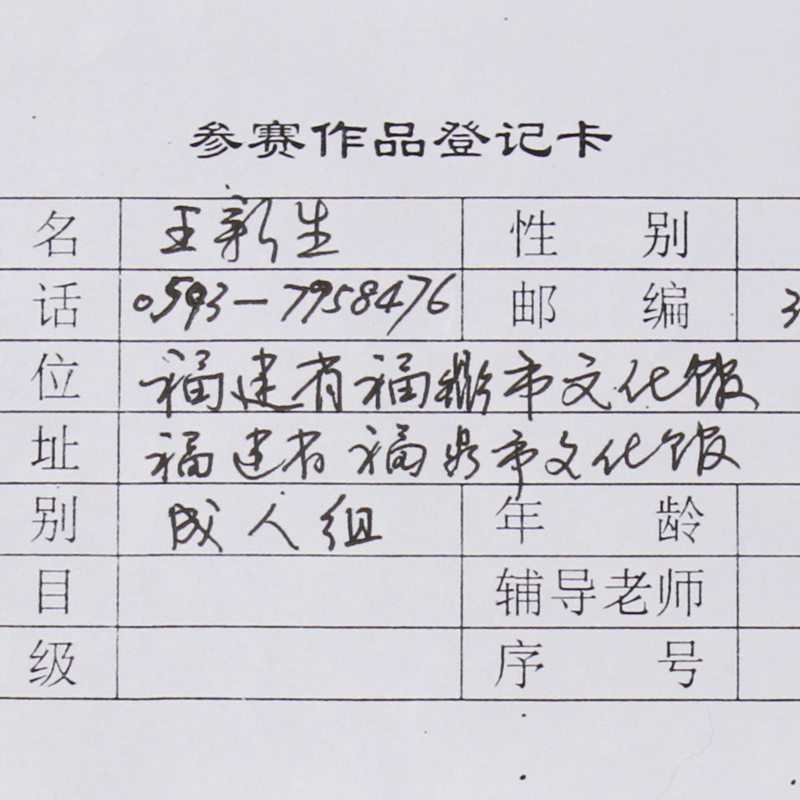 参赛作品登记卡
名 王新生 性别
话 0593-7958476 邮编 3
位 福建省福鼎市文化馆
址 福建省福鼎市文化馆
别 成人组 年龄
目 辅导老师
级 序号